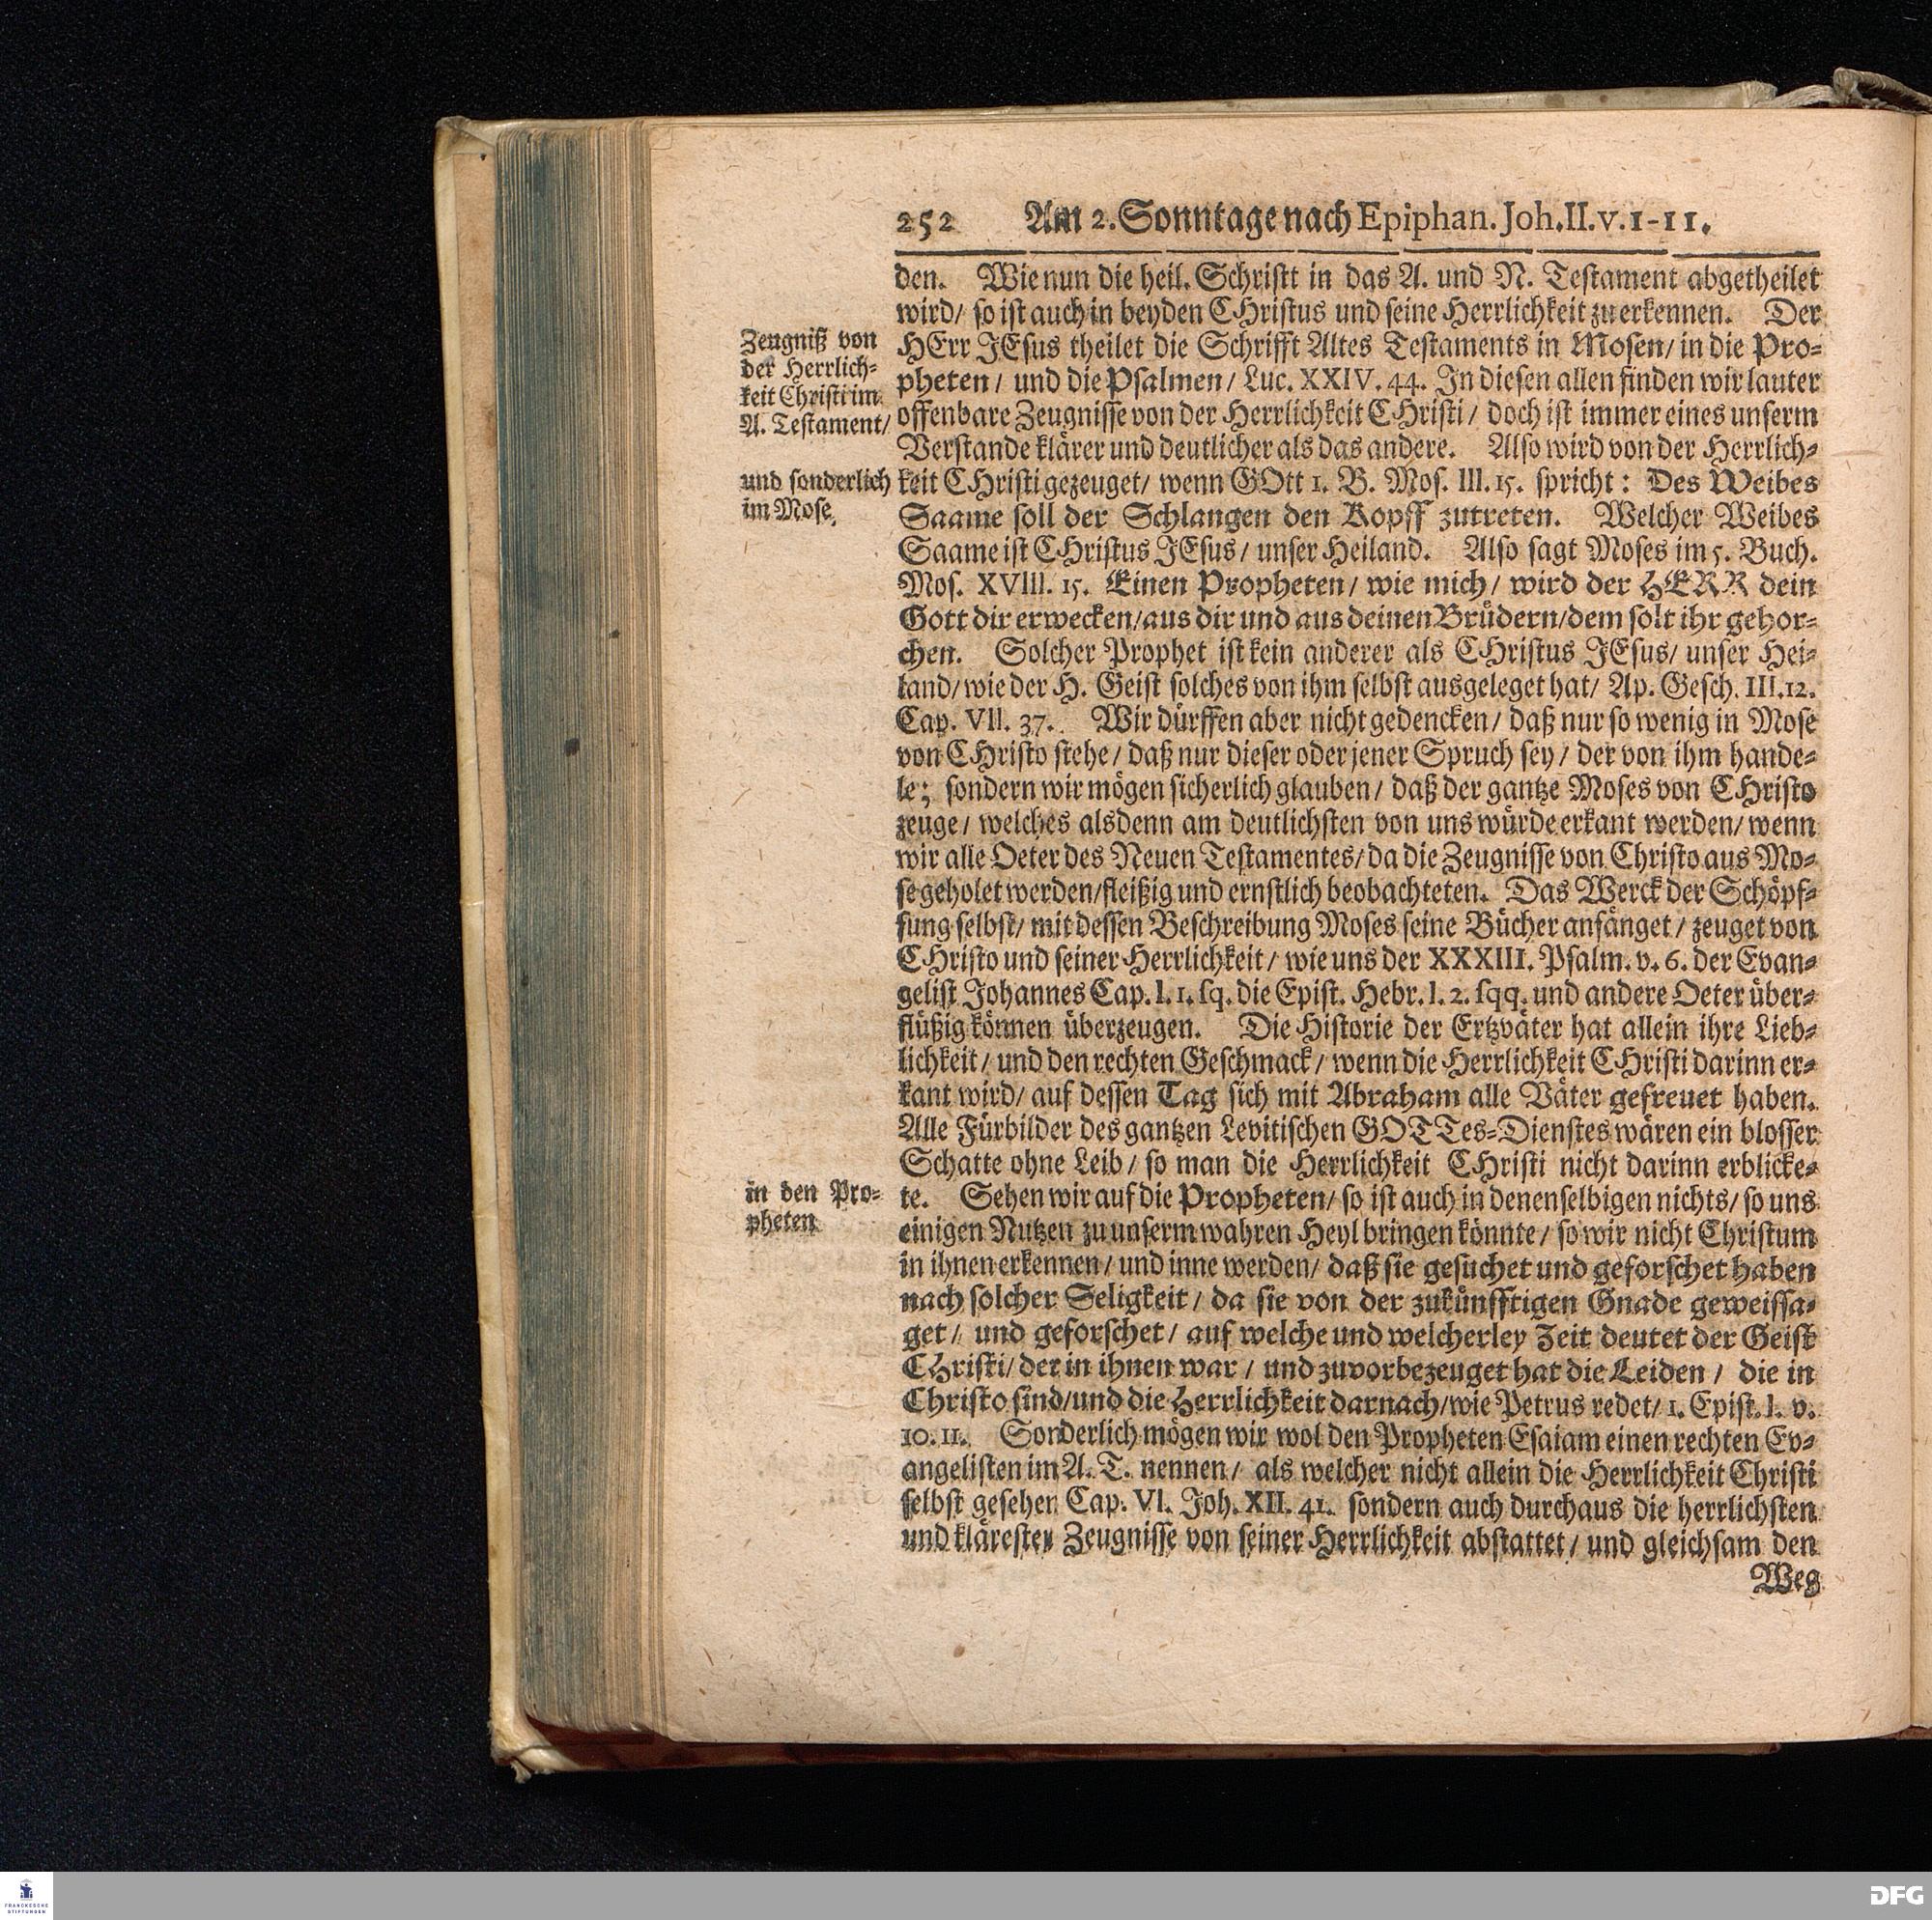 252 Am 2. Sonntage nach Epiphan. Joh. II. v. 1-11.
den. Wie nun die heil. Schrifft in das A. und N. Testament abgetheilet
wird/ so ist auch in beyden CHristus und seine Herrlichkeit zu erkennen. Der
HErr JEsus theilet die Schrifft Altes Testaments in Mosen/ in die Pro-
pheten/ und die Psalmen/ Luc. XXIV. 44. In diesen allen finden wir lauter
offenbare Zeugnisse von der Herrlichkeit CHristi/ doch ist immer eines unserm
Verstande klärer und deutlicher als das andere. Also wird von der Herrlich-
keit CHristi gezeuget/ wenn GOtt 1. B. Mos. III. 15. spricht: Des Weibes
Saame soll der Schlangen den Kopff zutreten. Welcher Weibes
Saame ist CHristus JEsus/ unser Heiland. Also sagt Moses im 5. Buch.
Mos. XVIII. 15. Einen Propheten/ wie mich/ wird der HERR dein
Gott dir erwecken/ aus dir und aus deinen Brüdern/ dem solt ihr gehor-
chen. Solcher Prophet ist kein anderer als CHristus JEsus/ unser Hei-
land/ wie der H. Geist solches von ihm selbst ausgeleget hat/ Ap. Gesch. III. 12.
Cap. VII. 37. Wir dürffen aber nicht gedencken/ daß nur so wenig in Mose
von CHristo stehe/ daß nur dieser oder jener Spruch sey/ der von ihm hande-
le; sondern wir mögen sicherlich glauben/ daß der gantze Moses von CHristo
zeuge/ welches alsdenn am deutlichsten von uns würde erkant werden/ wenn
wir alle Oerter des Neuen Testamentes/ da die Zeugnisse von Christo aus Mo-
se geholet werden/ fleißig und ernstlich beobachteten. Das Werck der Schöpf-
fung selbst/ mit dessen Beschreibung Moses seine Bücher anfänget/ zeuget von
CHristo und seiner Herrlichkeit/ wie uns der XXXIII. Psalm. v. 6. der Evan-
gelist Johannes Cap. I. 1. sq. die Epist. Hebr. I. 2. sqq. und andere Oerter über-
flüßig können überzeugen. Die Historie der Ertzväter hat allein ihre Lieb-
lichkeit/ und den rechten Geschmack/ wenn die Herrlichkeit CHristi darinn er-
kant wird/ auf dessen Tag sich mit Abraham alle Väter gefreuet haben.
Alle Fürbilder des gantzen Levitischen GOTTes-Dienstes wären ein blosser
Schatte ohne Leib/ so man die Herrlichkeit CHristi nicht darinn erblicke-
te. Sehen wir auf die Propheten/ so ist auch in denenselbigen nichts/ so uns
einigen Nutzen zu unserm wahren Heyl bringen könnte/ so wir nicht Christum
in ihnen erkennen/ und inne werden/ daß sie gesuchet und geforschet haben
nach solcher Seligkeit/ da sie von der zukünfftigen Gnade geweissa-
get/ und geforschet/ auf welche und welcherley Zeit deutet der Geist
CHristi/ der in ihnen war/ und zuvor bezeuget hat die Leiden/ die in
Christo sind/ und die Herrlichkeit darnach/ wie Petrus redet/ 1. Epist. I. v.
10. 11. Sonderlich mögen wir wol den Propheten Esaiam einen rechten Ev-
angelisten im A. T. nennen/ als welcher nicht allein die Herrlichkeit Christi
selbst gesehen Cap. VI. Joh. XII. 41. sondern auch durchaus die herrlichsten
und kläresten Zeugnisse von seiner Herrlichkeit abstattet/ und gleichsam den
Weg
Zeugniß von
der Herrlich-
keit Christi im
A. Testament/
und sonderlich
im Mose,
in den Pro-
pheten
FRANCKESCHE
STIFTUNGEN
DFG